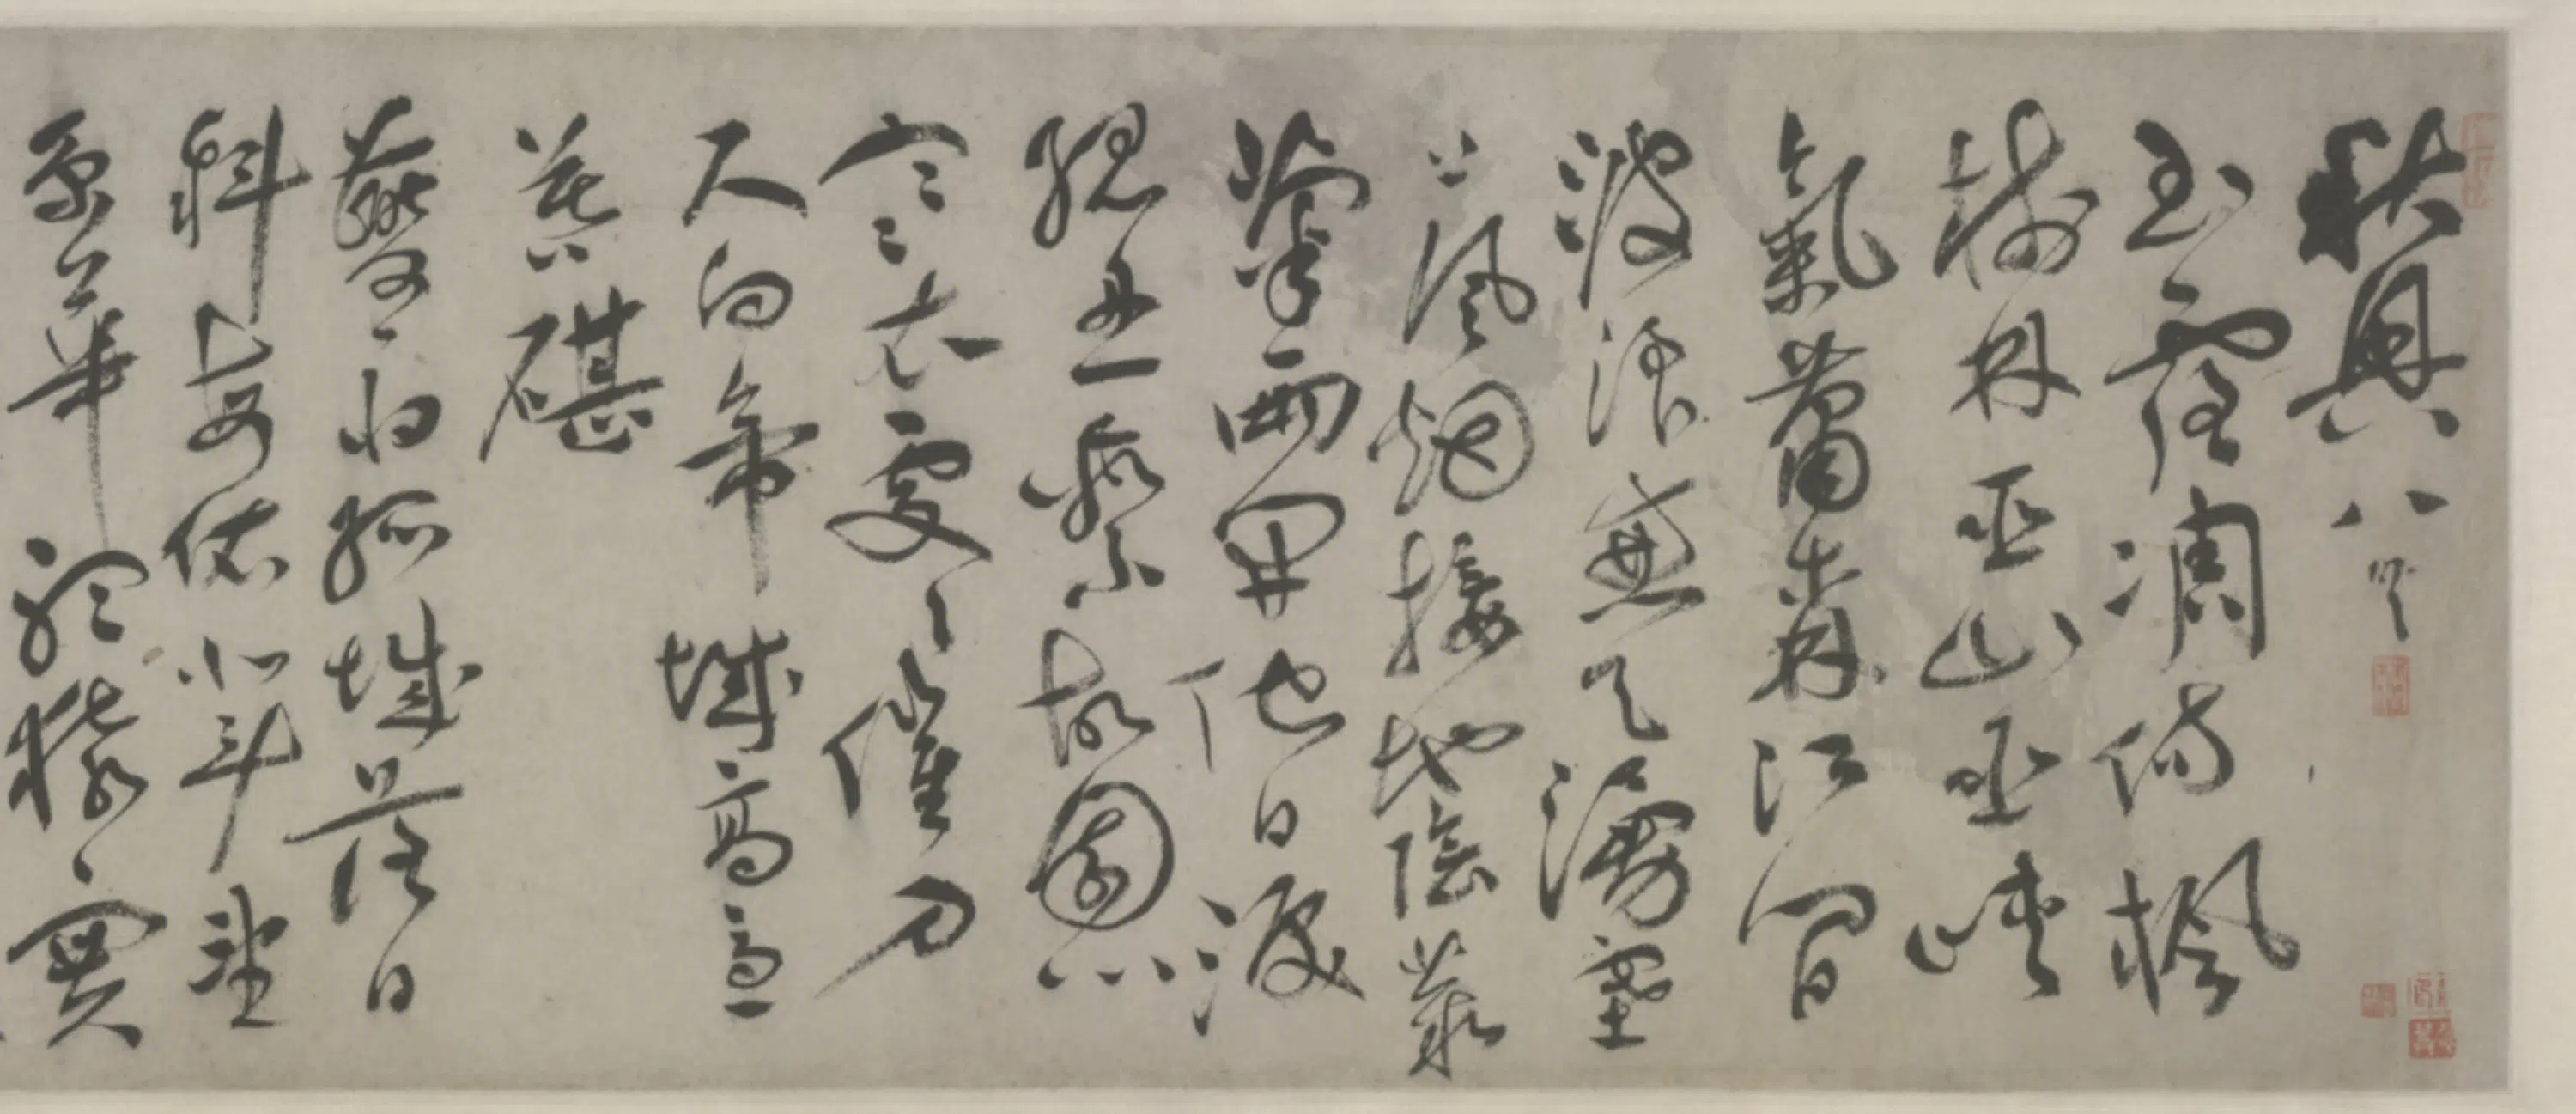 秋興八首
玉露凋傷楓
樹林巫山巫峽
氣蕭森江間
波浪兼天湧塞
上風烟接地陰叢
菊兩開他日淚
孤舟一繫故園心
寒衣處々催刀
尺白帝城高急
暮碪
夔府孤城落日
斜每依北斗望
京華聽猿實